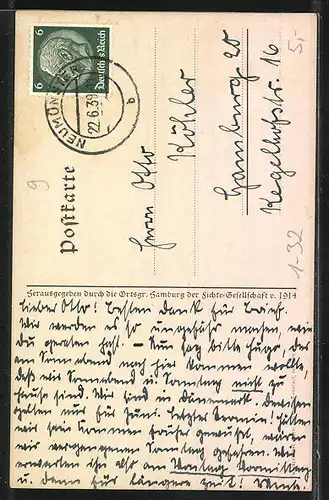 6 Deutsches Reich 6
NEUMÜNSTER
22.6.39
b
5,-
9
Postkarte
Herrn Otto
Köhler
Hamburg 20
Kegelhofstr. 16
1-32
Herausgegeben durch die Ortsgr. Hamburg der Fichte-Gesellschaft v. 1914
Lieber Otto! Besten Dank für Brief.
Wir werden es so ungefähr machen, wie
Du geraten hast. – Nun sag bitte Hugo, der
am Sonnabend nach hier kommen wollte,
daß wir Sonnabend u. Sonntag nicht zu
Hause sind. Wir sind in Dänemark. Devisen
gelten nur für Juni. Letzter Termin! Hätten
wir sein Kommen früher gewußt, wären
wir vergangenen Sonntag gefahren. Wir
erwarten ihn also am Montag Vormittag
u. dann für längere Zeit!